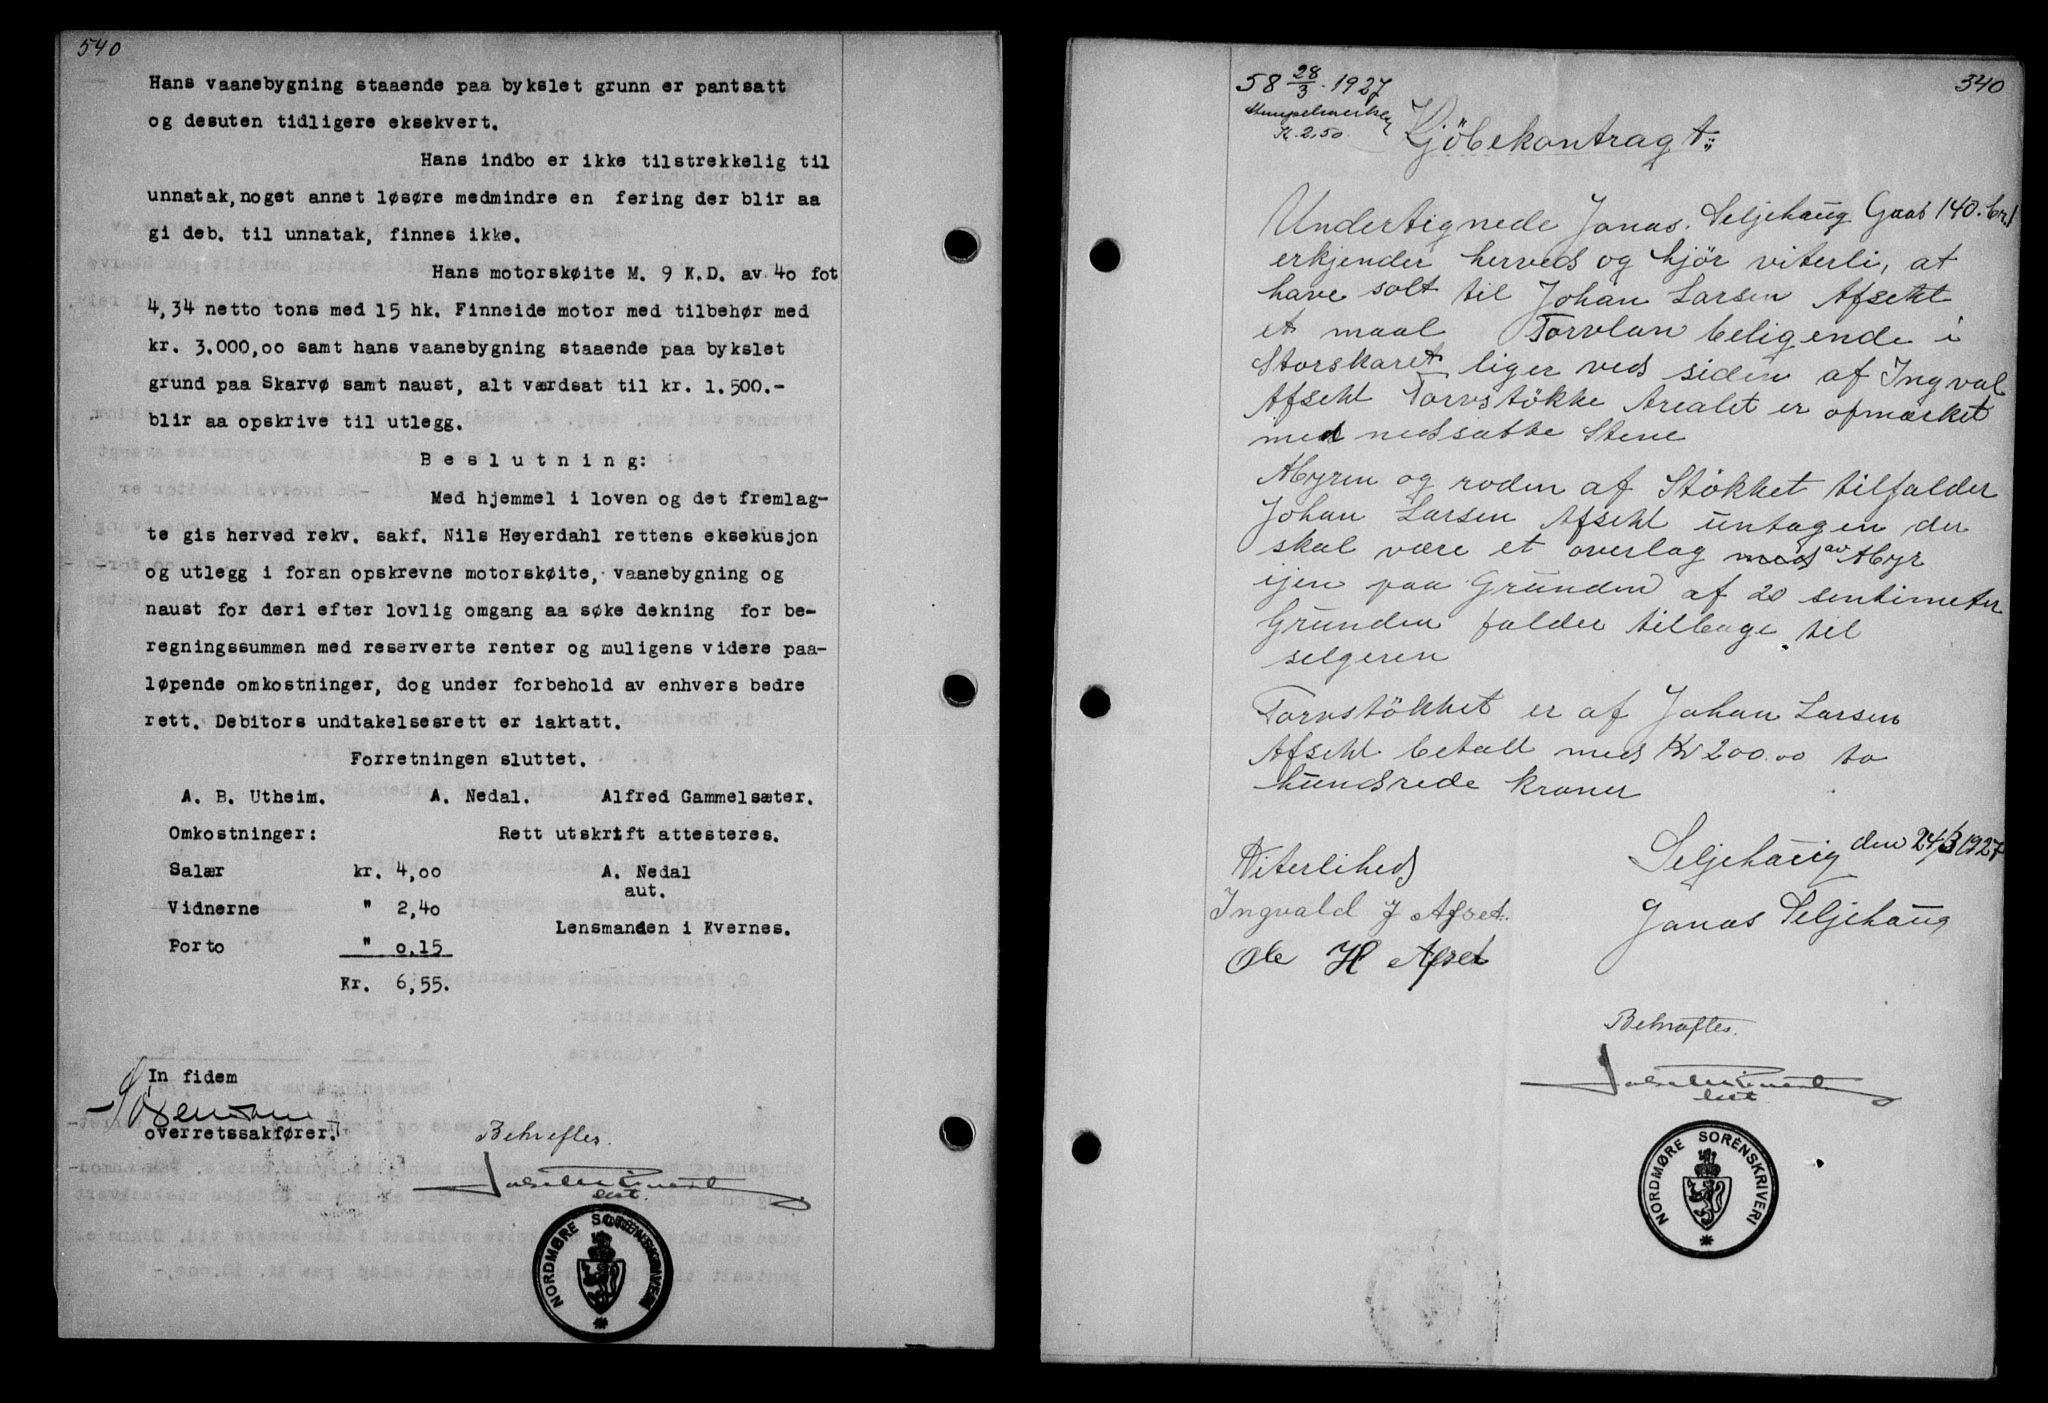 540
Hans vaanebygning staaende paa bykslet grunn er pantsatt
og desuten tidligere eksekvert.
Hans indbo er ikke tilstrekkelig til
unnatak, noget annet løsøre medmindre en fering der blir aa
gi deb. til unnatak, finnes ikke.
Hans motorskøite M. 9 K.D. av 40 fot
4,34 netto tons med 15 hk. Finneide motor med tilbehør med
kr. 3.000,00 samt hans vaanebygning staaende paa bykslet
grund paa Skarvø samt naust, alt værdsat til kr. 1.500.-
blir aa opskrive til utlegg.
Beslutning:
Med hjemmel i loven og det fremlag-
te gis herved rekv. sakf. Nils Heyerdahl rettens eksekusjon
og utlegg i foran opskrevne motorskøite, vaanebygning og
naust for deri efter lovlig omgang aa søke dekning for be-
regningssummen med reserverte renter og muligens videre paa-
løpende omkostninger, dog under forbehold av enhvers bedre
rett. Debitors undtakelsesrett er iaktatt.
Forretningen sluttet.
A. B. Utheim. A. Nedal. Alfred Gammelsæter.
Omkostninger: Rett utskrift attesteres.
Salær kr. 4,00 A. Nedal
aut.
Vidnerne " 2,40
Lensmanden i Kvernes.
Porto " 0,15
Kr. 6,55.
In fidem
overretssakfører.
Bekreftes.
NORDMØRE SORENSKRIVERI
58 28/3 1927
340
Stempelmerker
K. 2,50.
Kjöbekontragt:
Undertignede Jonas. Seljehaug Gaas 140. br 1
erkjender herved og hjör viterli, at
have solt til Johan Larsen Afseht
et maal Torvlan beligende i
Storskaret liger ved siden af Ingval
Afseht Torvstökke Arealet er ofmærket
med nedsatte Stene
Myren og roden af Stökket tilfalder
Johan Larsen Afseht untagen der
skal være et overlag med av Myr
ijen paa Grunden af 20 sentimeter
Grunden falder tilbage til
selgeren
Torvstökket er af Johan Larsen
Afseht betalt med Kr 200.00 to
hundrede kroner
Seljehaug den 24/3 1927
Viterlihed
Jonas Seljehaug
Ingvald J Afset.
Ole H Afset
Bekreftes.
NORDMØRE SORENSKRIVERI